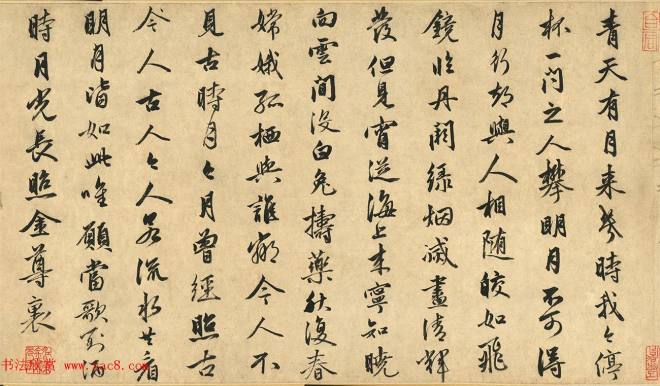 青天有月来幾時我今停
杯一問之人攀明月不可得
月行却與人相随皎如飛
鏡臨丹闕緑烟滅盡清輝
發但見宵從海上来寧知曉
向雲間没白兔擣藥秋復春
嫦娥孤栖與誰鄰今人不
見古時月今月曾經照古
今人古人今人若流水共看
明月皆如此唯願當歌對酒
時月光長照金尊裏
书法欣赏 www.yac8.com